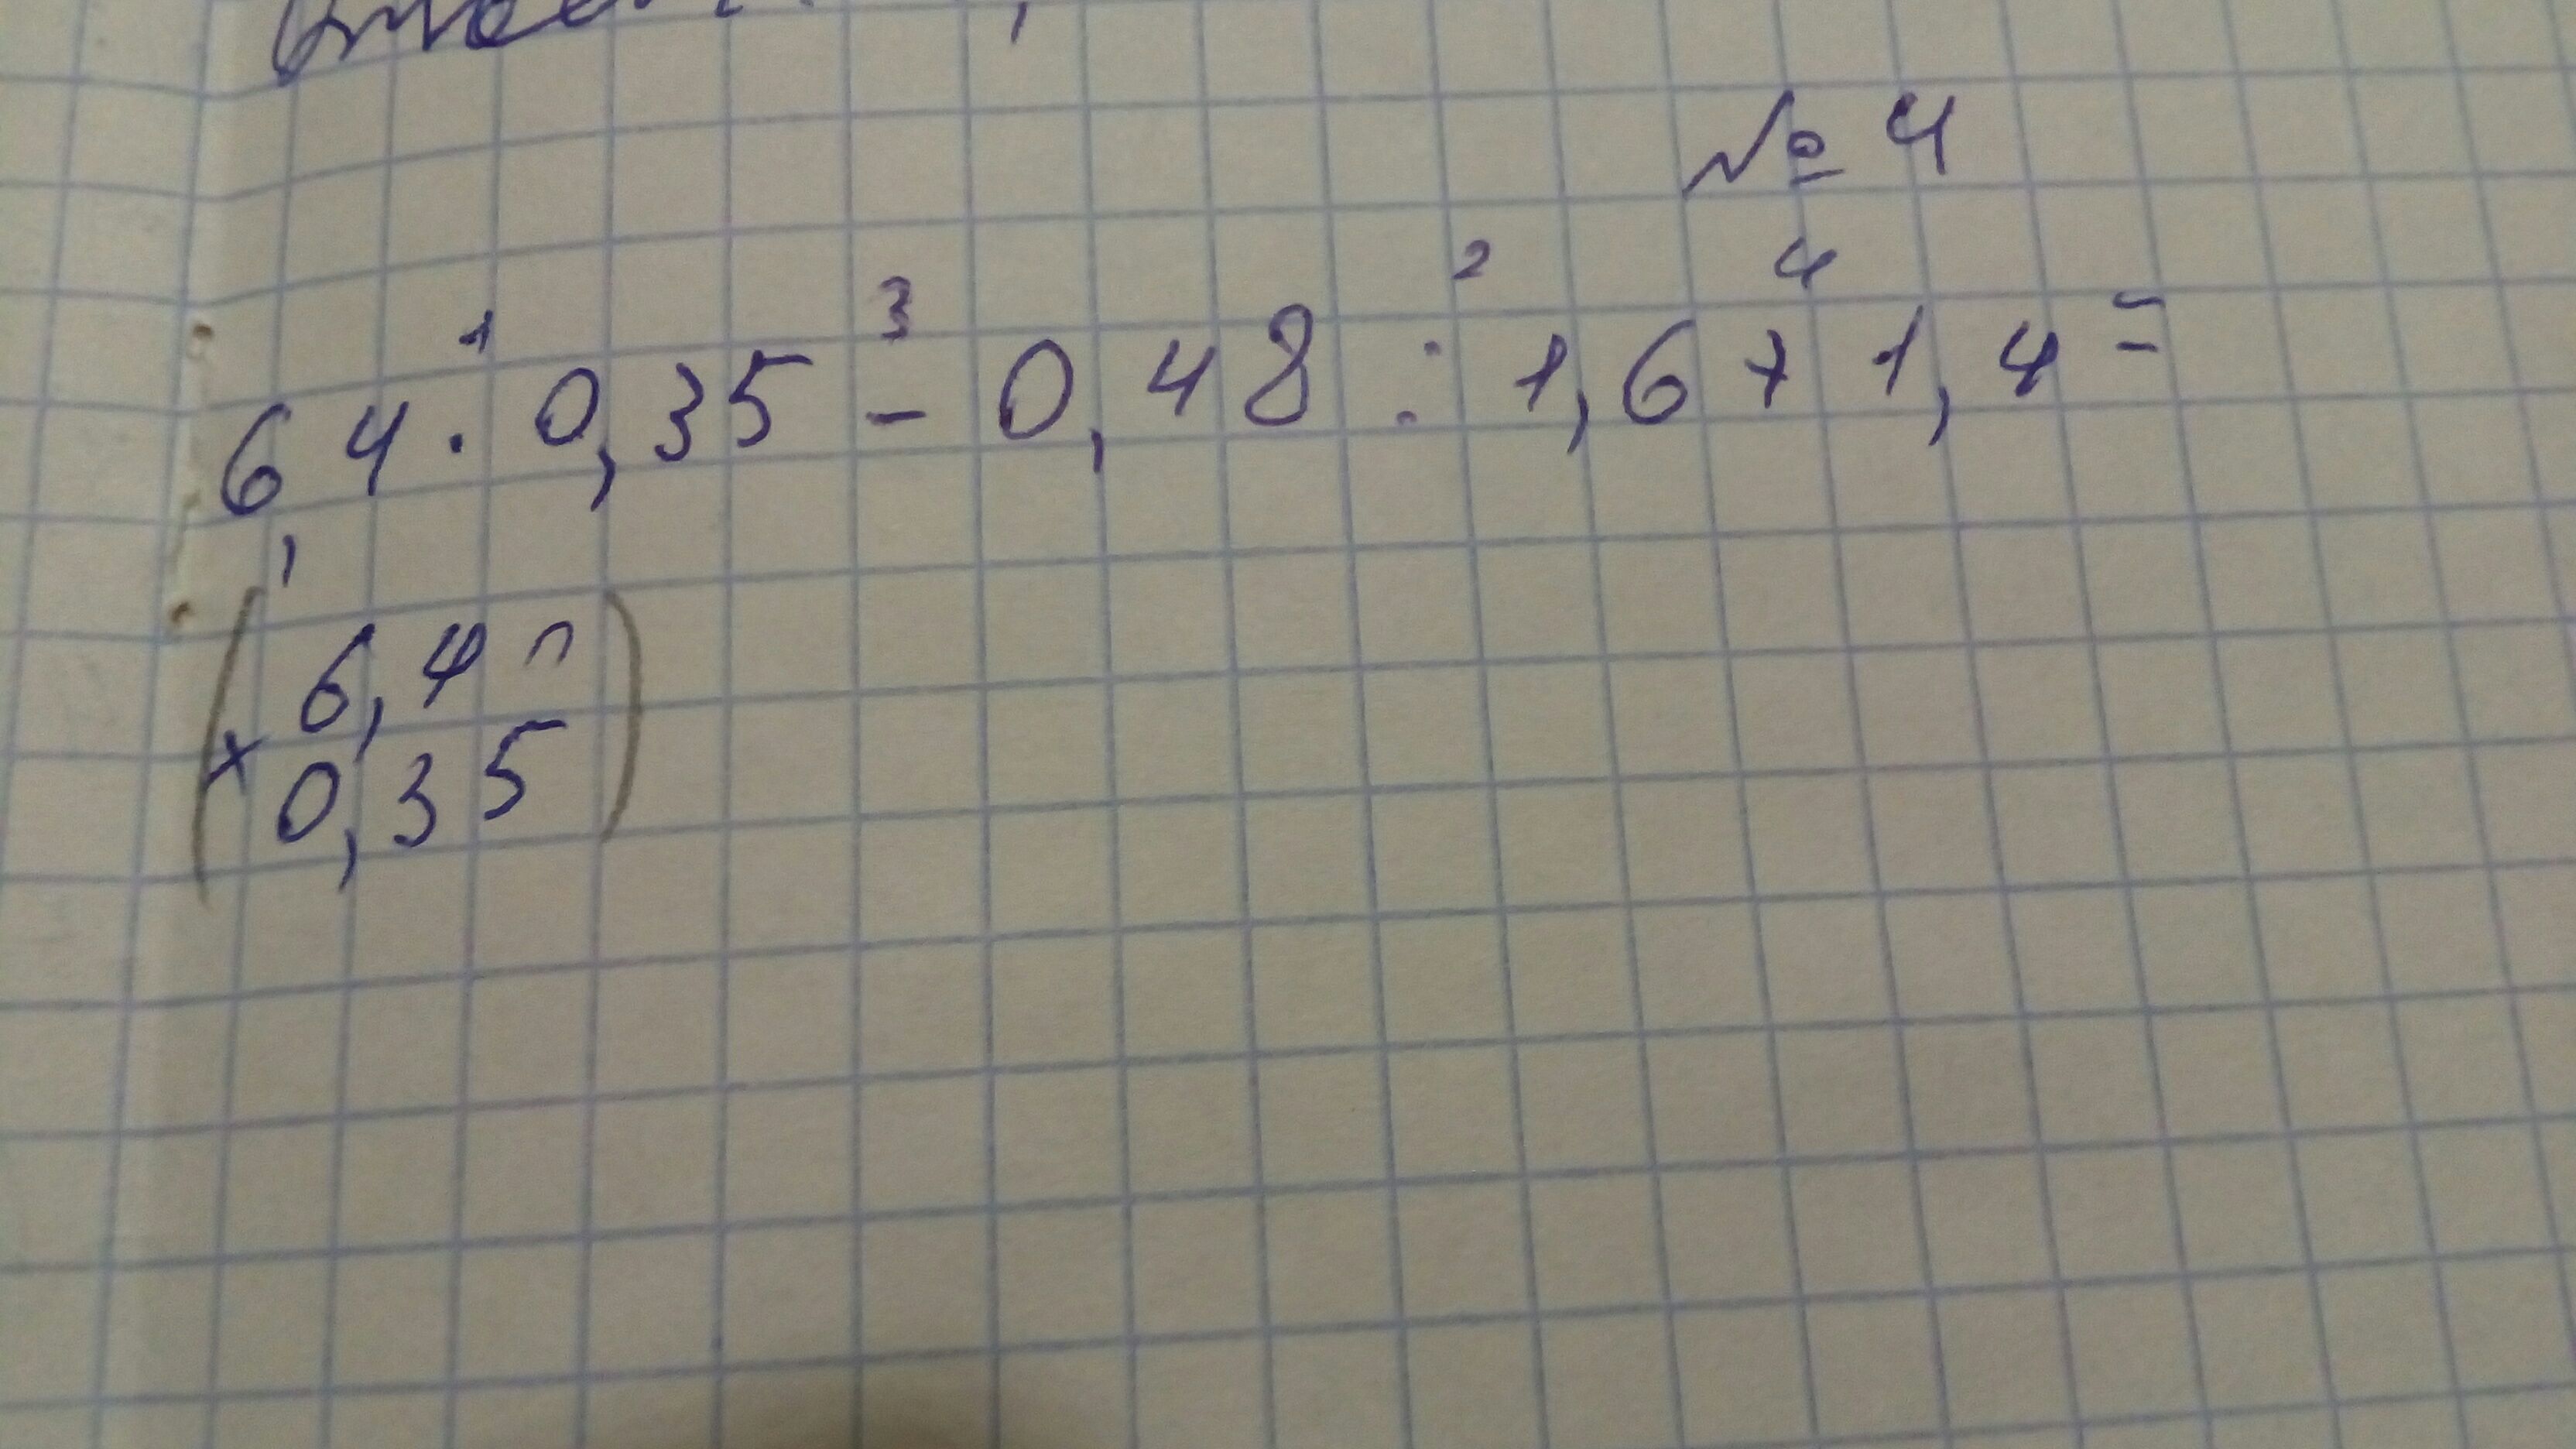 № 4
1 3 2 4
6,4 · 0,35 - 0,48 : 1,6 + 1,4 =
6,4
× 0,35